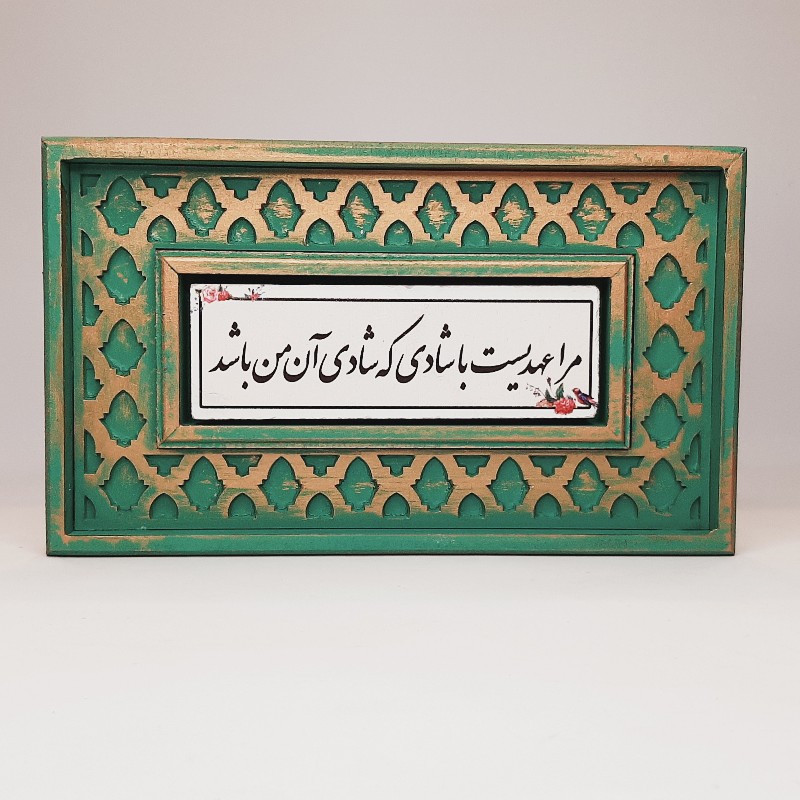 مرا عهدیست با شادی که شادی آن من باشد